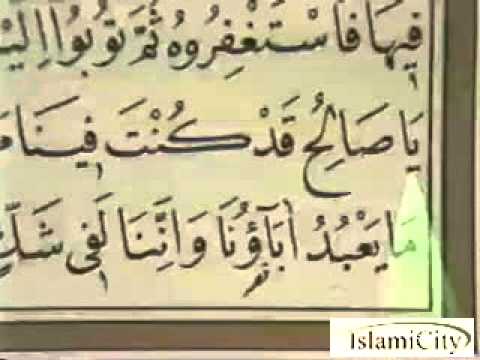 فِيهَا فَاسْتَغْفِرُوهُ ثُمَّ تُوبُوا
يَا صَالِحُ قَدْ كُنْتَ فِينَا
مَا يَعْبُدُ اٰبَٓاؤُ۬نَا وَاِنَّنَا لَفِى شَكٍّ
IslamiCity